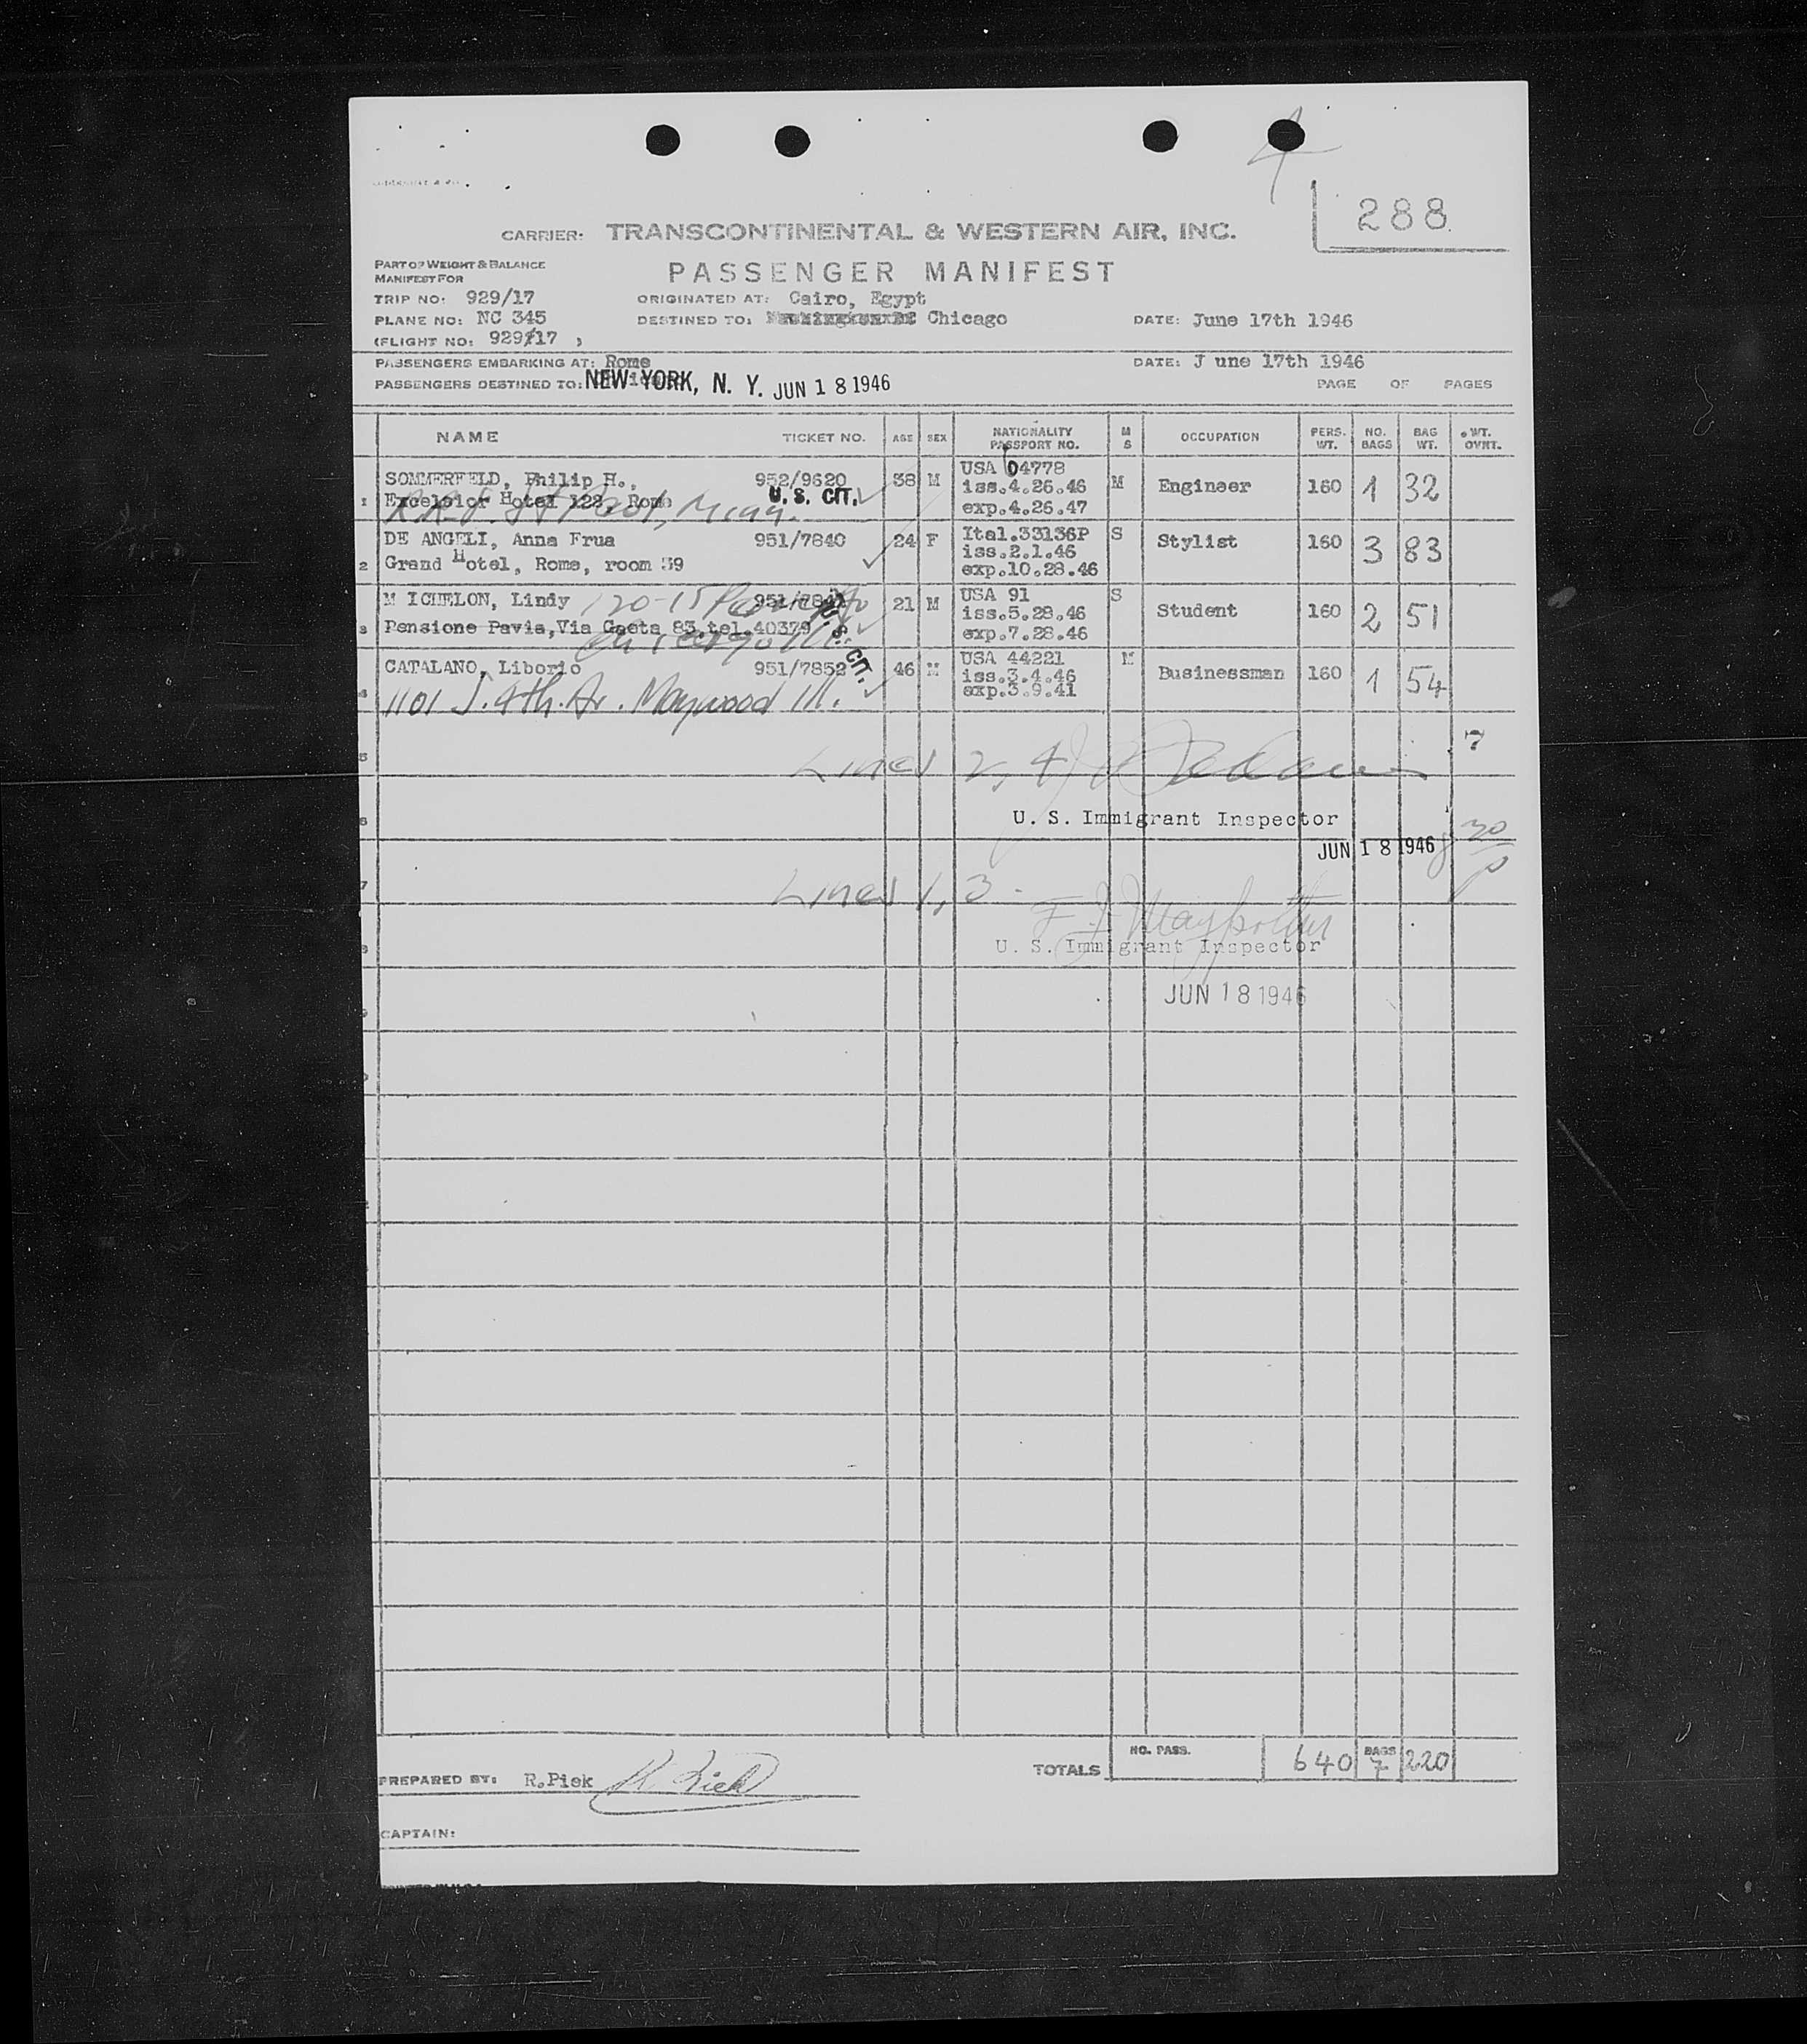 4
288
CARRIER: TRANSCONTINENTAL & WESTERN AIR, INC.
PART OF WEIGHT & BALANCE
MANIFEST FOR
PASSENGER MANIFEST
TRIP NO: 929/17 ORIGINATED AT: Cairo, Egypt
PLANE NO: NC 345 DESTINED TO: Chicago DATE: June 17th 1946
(FLIGHT NO: 929/17 )
PASSENGERS EMBARKING AT: Rome DATE: J une 17th 1946
PASSENGERS DESTINED TO: NEW YORK, N. Y. JUN 18 1946 PAGE OF PAGES
NAME TICKET NO. AGE SEX NATIONALITY PASSPORT NO. M S OCCUPATION PERS. WT. NO. BAGS BAG WT. WT. OVNT.
1 SOMMERFELD, Philip H., 952/9620 38 M USA 04778 M Engineer 160 1 32
Excelsior Hotel 128, Rome U.S. CIT. iss.4.26.46
exp.4.26.47
2 DE ANGELI, Anna Frua 951/7840 24 F Ital.33136P S Stylist 160 3 83
Grand Hotel, Rome, room 59 iss.2.1.46
exp.10.28.46
3 M ICHELON, Lindy 120-15 21 M USA 91 S Student 160 2 51
Pensione Pavia,Via Gaeta 83,tel.40379 U.S. CIT. iss.5.28.46
Chicago Ill. exp.7.28.46
4 CATALANO, Liborio 951/7852 46 M USA 44221 M Businessman 160 1 54
1101 S. 9th. Av. Maywood Ill. iss.3.4.46
exp.3.9.41
5 Lines 2, 4 7
6 U. S. Immigrant Inspector
JUN 18 1946
7 Lines 1, 3
8 U. S. Immigrant Inspector
JUN 18 1946
TOTALS NO. PASS. 640 BAGS 7 220
PREPARED BY: R.Piek R. Piek
CAPTAIN: